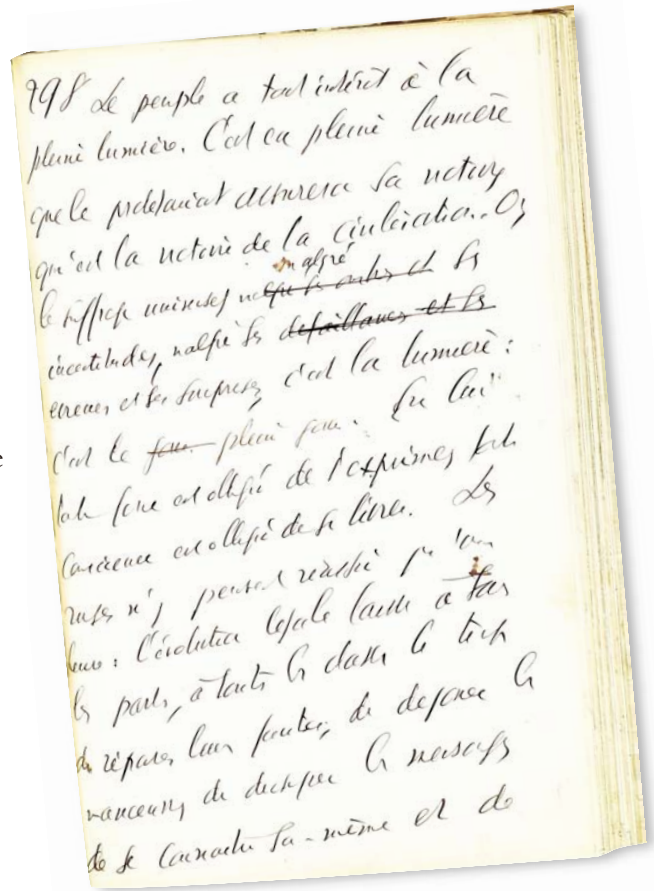 298 Le peuple a tout intérêt à la
pleine lumière. C'est en pleine lumière
que le prolétariat assurera sa victoire
qu'est la victoire de la civilisation. Or,
malgré
le suffrage universel les
incertitudes, malgré les défaillances et les
erreurs et les surprises, c'est la lumière :
c'est le jour plein jour. En lui
toute force est obligée de s'exprimer, toute
conscience est obligée de se livrer. Les
ruses n'y peuvent réussir qu'une
heure : l'évolution légale laisse à tous
les partis, à toutes les classes le temps
de réparer leurs fautes, de déjouer les
manœuvres, de dissiper les mensonges
de se connaître soi-même et de
e